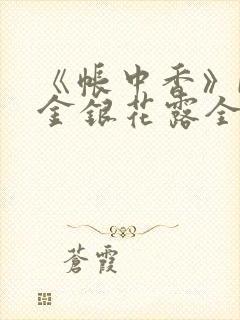 《帳中香》
金銀花露全
蒼霞